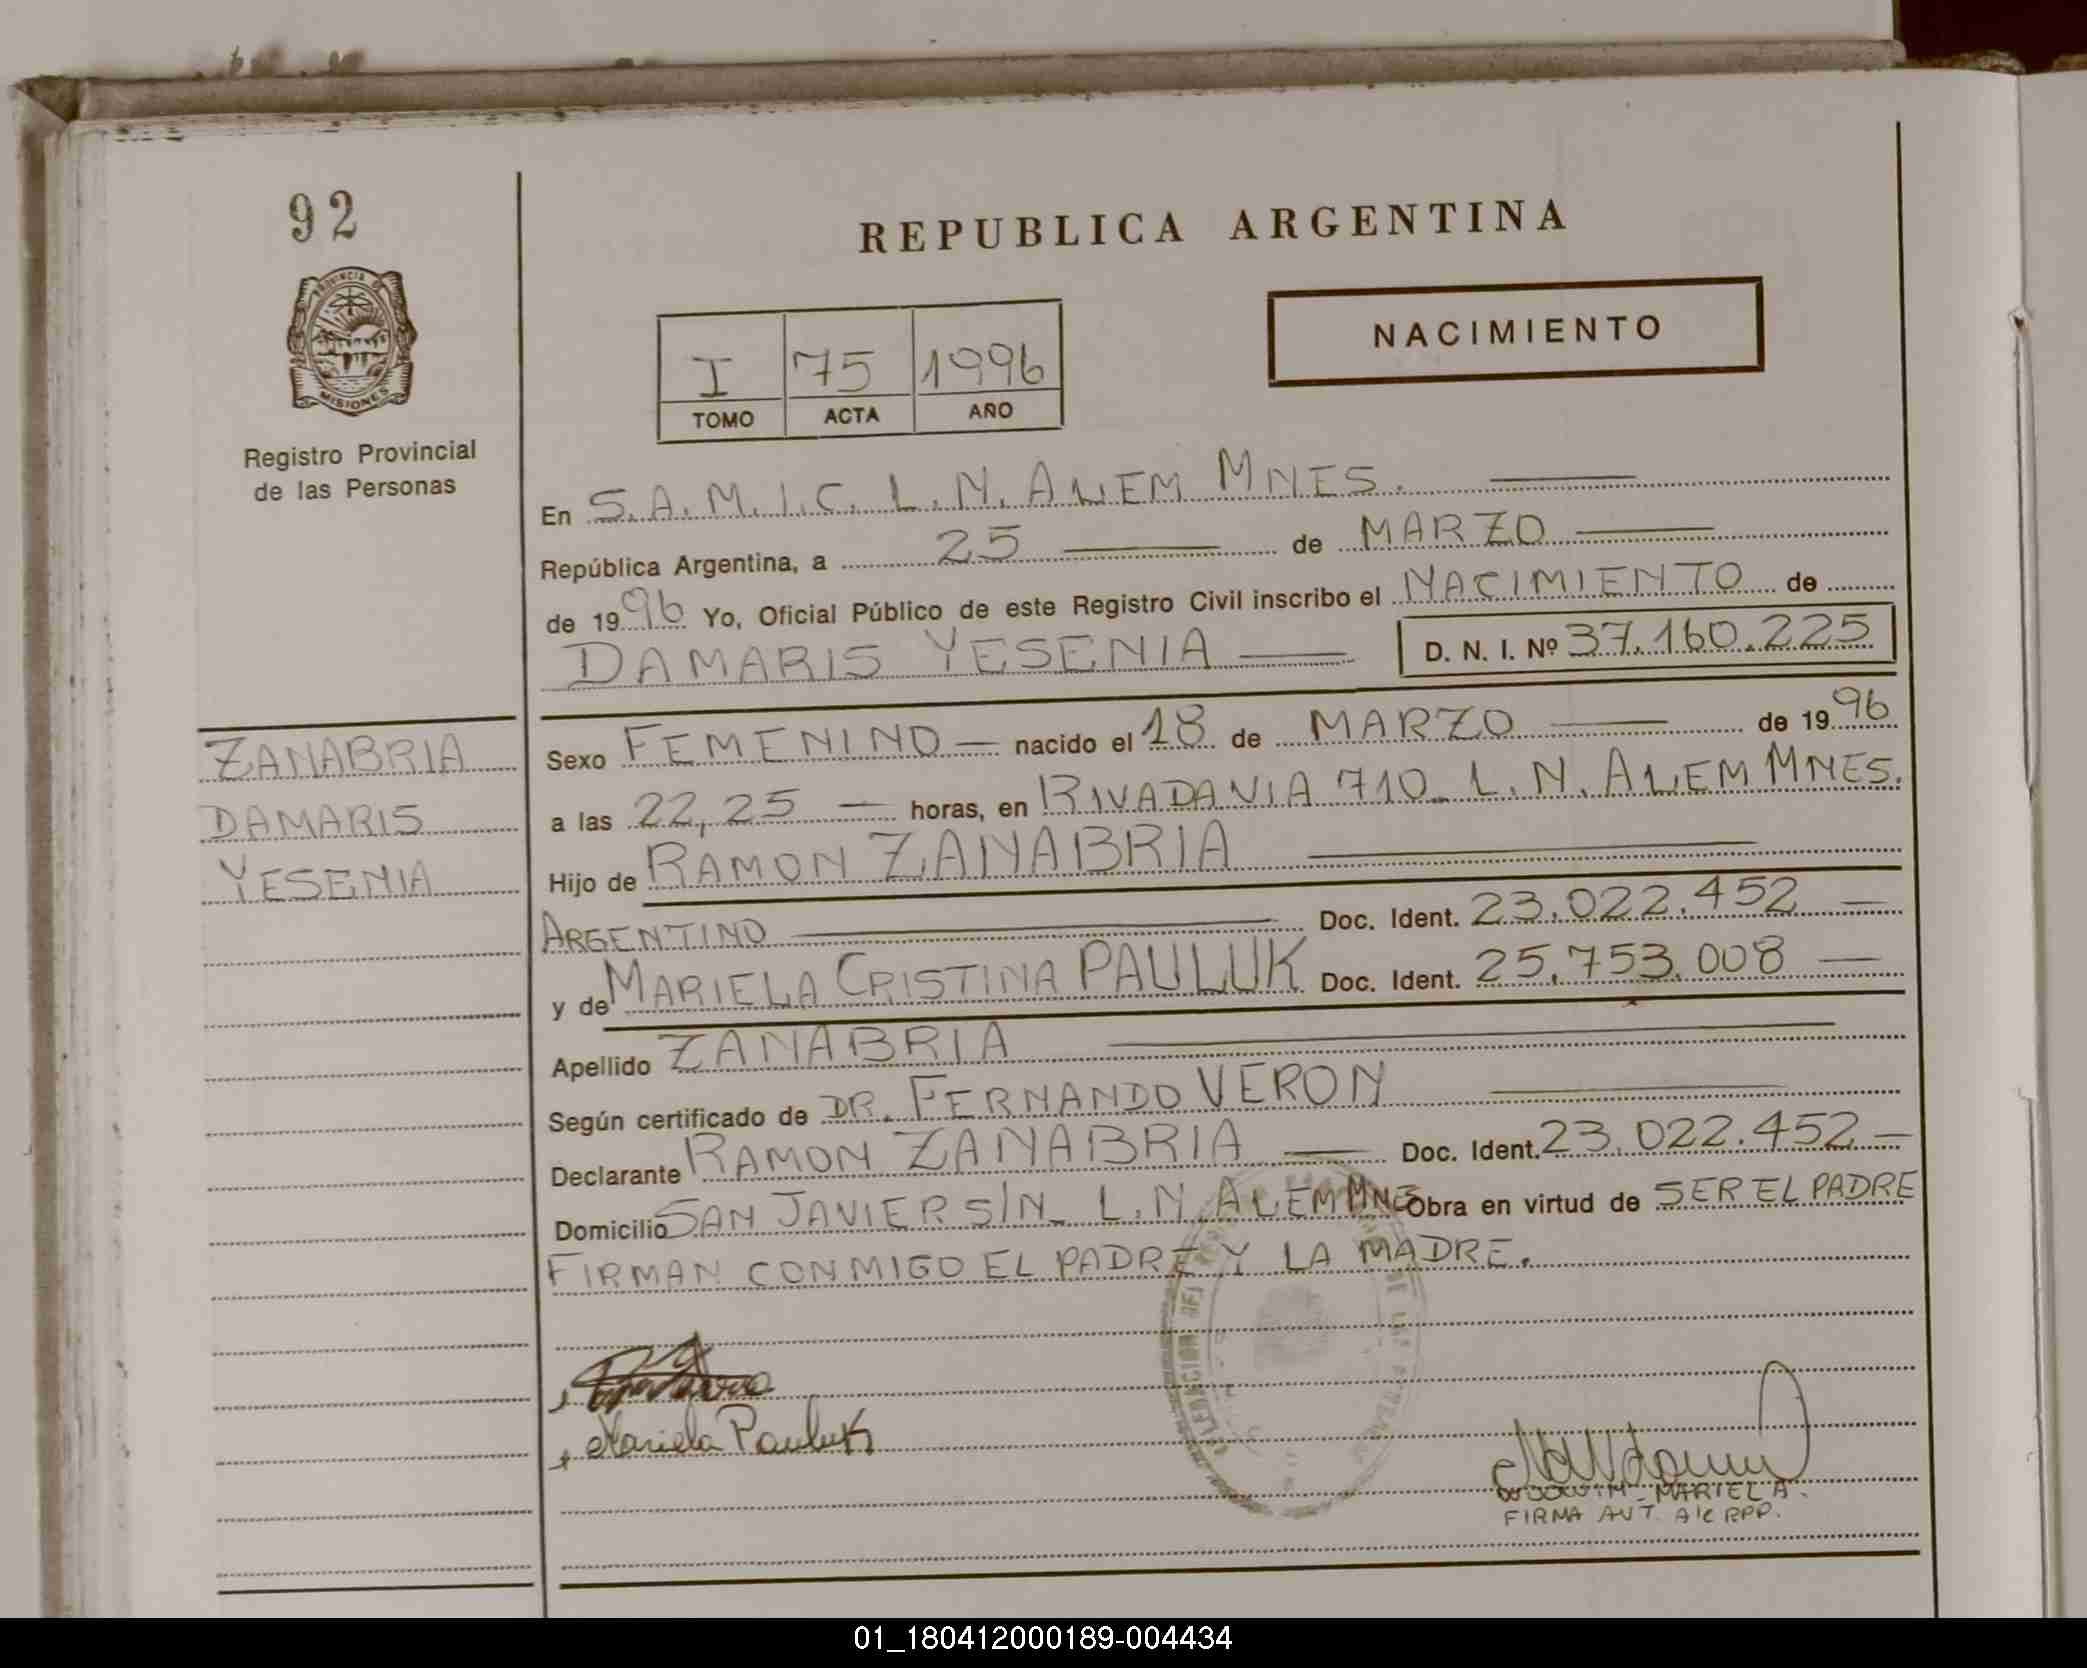 92
PROVINCIA DE
MISIONES
Registro Provincial
de las Personas
REPUBLICA ARGENTINA
NACIMIENTO
I 75 1996
TOMO ACTA AÑO
En S.A.M.I.C. L.N. ALEM MNES.
República Argentina, a 25 de MARZO
de 1996 Yo, Oficial Público de este Registro Civil inscribo el NACIMIENTO de
DAMARIS YESENIA D. N. I. Nº 37.160.225
ZANABRIA
DAMARIS
YESENIA
Sexo FEMENINO nacido el 18 de MARZO de 1996
a las 22,25 horas, en RIVADAVIA 710 L.N. ALEM MNES.
Hijo de RAMON ZANABRIA
ARGENTINO Doc. Ident. 23.022.452
y de MARIELA CRISTINA PAULUK Doc. Ident. 25.753.008
Apellido ZANABRIA
Según certificado de DR. FERNANDO VERON
Declarante RAMON ZANABRIA Doc. Ident. 23.022.452
Domicilio SAN JAVIER S/N L.N. ALEM MNES Obra en virtud de SER EL PADRE
FIRMAN CONMIGO EL PADRE Y LA MADRE.
Mariela Pauluk
MARIEL A.
FIRMA AUT. A/C RPP.
01_180412000189-004434